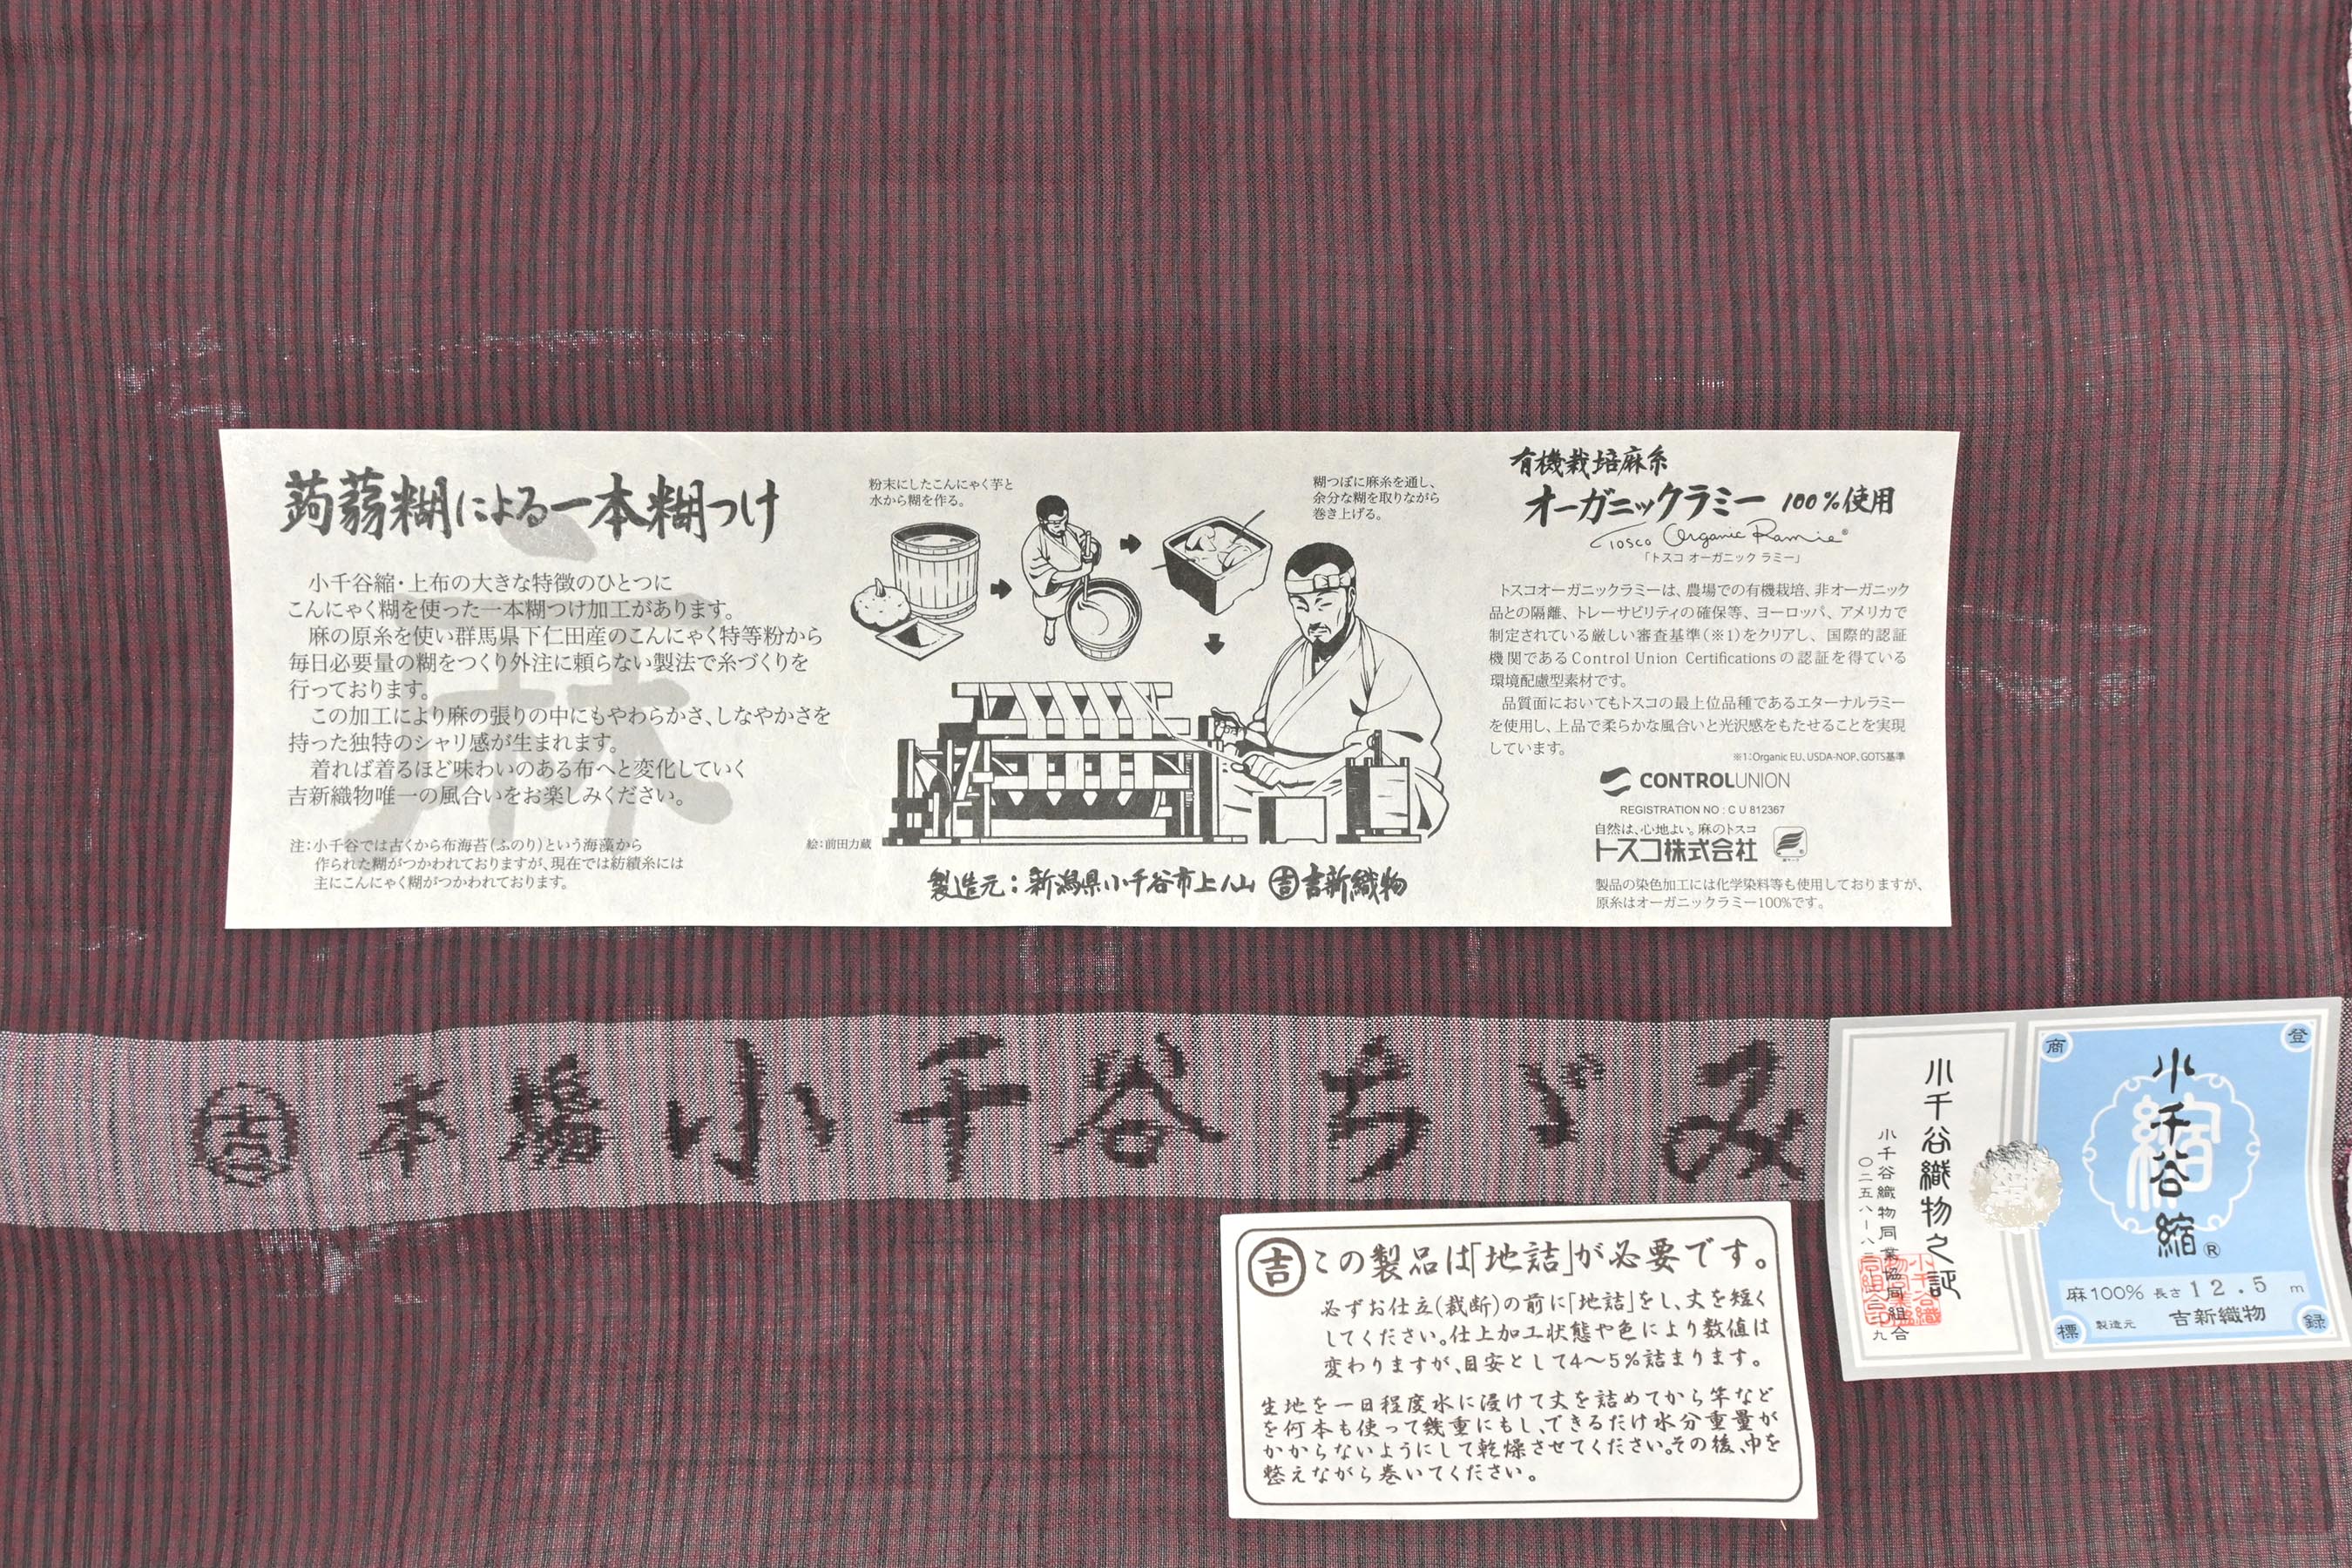 蒟蒻糊による一本糊つけ
小千谷縮・上布の大きな特徴のひとつに
こんにゃく糊を使った一本糊つけ加工があります。
麻の原糸を使い群馬県下仁田産のこんにゃく特等粉から
毎日必要量の糊をつくり外注に頼らない製法で糸づくりを
行っております。
この加工により麻の張りの中にもやわらかさ、しなやかさを
持った独特のシャリ感が生まれます。
着れば着るほど味わいのある布へと変化していく
吉新織物唯一の風合いをお楽しみください。
注：小千谷では古くから布海苔（ふのり）という海藻から
作られた糊がつかわれておりますが、現在では紡績糸には
主にこんにゃく糊がつかわれております。
麻
粉末にしたこんにゃく芋と
水から糊を作る。
糊つぼに麻糸を通し、
余分な糊を取りながら
巻き上げる。
絵：前田力蔵
製造元：新潟県小千谷市上ノ山 吉 吉新織物
有機栽培麻糸
オーガニックラミー 100%使用
Tosco Organic Ramie®
「トスコ オーガニック ラミー」
トスコオーガニックラミーは、農場での有機栽培、非オーガニック
品との隔離、トレーサビリティの確保等、ヨーロッパ、アメリカで
制定されている厳しい審査基準（※1）をクリアし、国際的認証
機関であるControl Union Certificationsの認証を得ている
環境配慮型素材です。
品質面においてもトスコの最上位品種であるエターナルラミー
を使用し、上品で柔らかな風合いと光沢感をもたせることを実現
しています。
※1：Organic EU、USDA-NOP、GOTS基準
CONTROLUNION
REGISTRATION NO : C U 812367
自然は、心地よい。麻のトスコ
トスコ株式会社
製品の染色加工には化学染料等も使用しておりますが、
原糸はオーガニックラミー100%です。
吉 本場小千谷ちぢみ
吉 この製品は「地詰」が必要です。
必ずお仕立(裁断)の前に「地詰」をし、丈を短く
してください。仕上加工状態や色により数値は
変わりますが、目安として4～5%詰まります。
生地を一日程度水に浸けて丈を詰めてから竿など
を何本も使って幾重にもし、できるだけ水分重量が
かからないようにして乾燥させてください。その後、巾を
整えながら巻いてください。
登
録
商
標
縮
小千谷縮®
麻100% 長さ 12.5 m
製造元 吉新織物
小千谷織物之証
小千谷織物同業協同組合